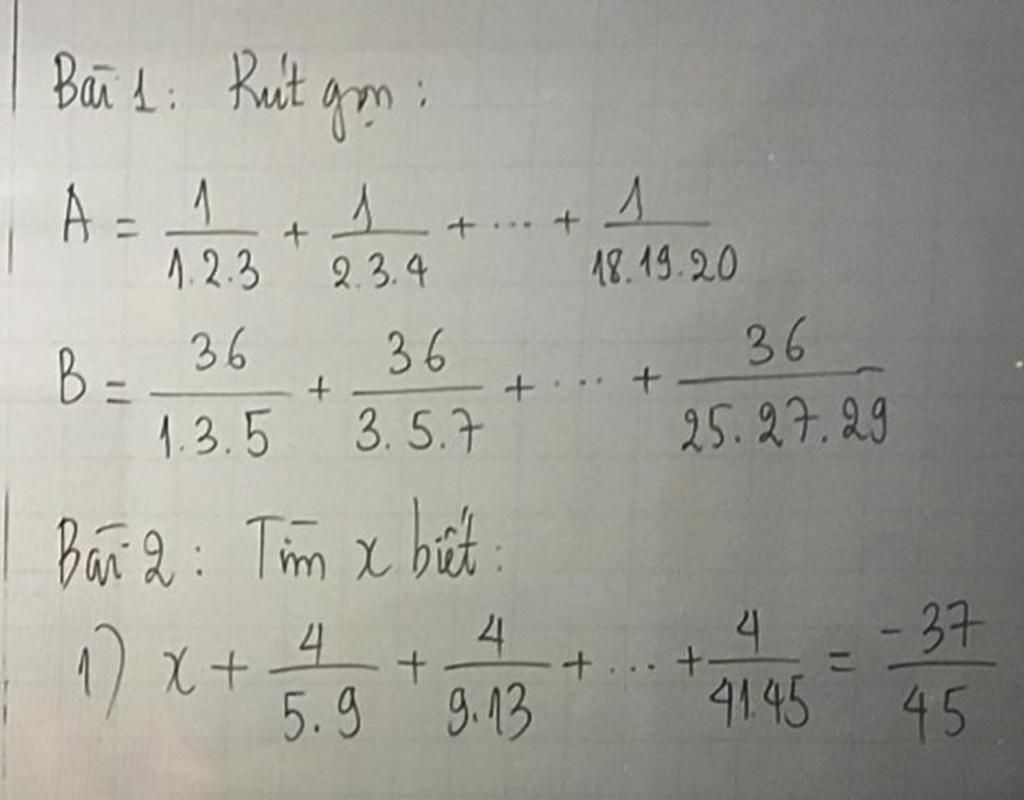 Bài 1: Rút gọn:
A = 1/1.2.3 + 1/2.3.4 + ... + 1/18.19.20
B = 36/1.3.5 + 36/3.5.7 + ... + 36/25.27.29
Bài 2: Tìm x biết:
1) x + 4/5.9 + 4/9.13 + ... + 4/41.45 = -37/45